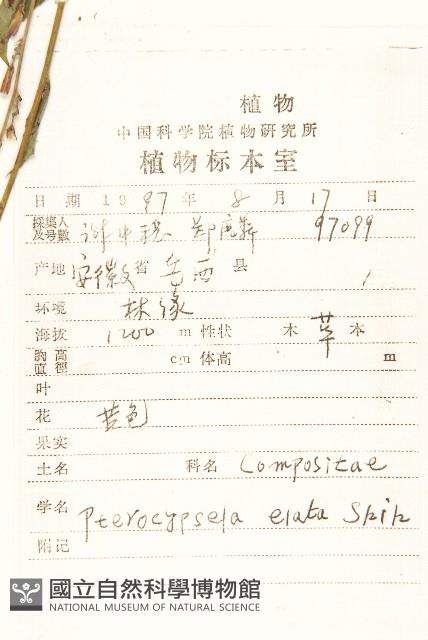 植物
中国科学院植物研究所
植物标本室
日期 1997 年 8 月 17 日
採集人及号數 97099
产地 安徽 省 岳西 县
环境 林缘
海拔 1200 m 性状 木 草 本
胸高直徑 cm 体高 m
叶
花 黄色
果实
土名 科名 Compositae
学名 Pterocypsela elata Shih
附记
國立自然科學博物館
NATIONAL MUSEUM OF NATURAL SCIENCE